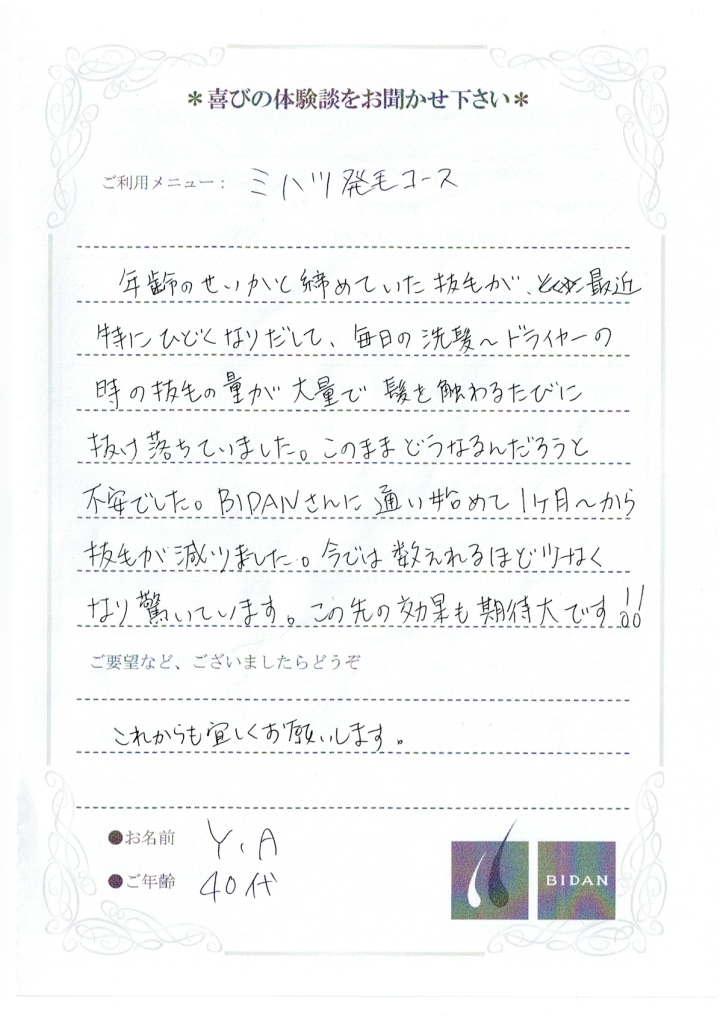 ＊喜びの体験談をお聞かせ下さい＊
ご利用メニュー： ミハツ発毛コース
年齢のせいかと締めていた抜毛が、最近
特にひどくなりだして、毎日の洗髪～ドライヤーの
時の抜毛の量が大量で髪を触わるたびに
抜け落ちていました。このままどうなるんだろうと
不安でした。BIDANさんに通い始めて1ヶ月～から
抜毛が減りました。今では数えれるほど少なく
なり驚いています。この先の効果も期待大です!!
ご要望など、ございましたらどうぞ
これからも宜しくお願いします。
●お名前 Y.A
●ご年齢 40代
BIDAN